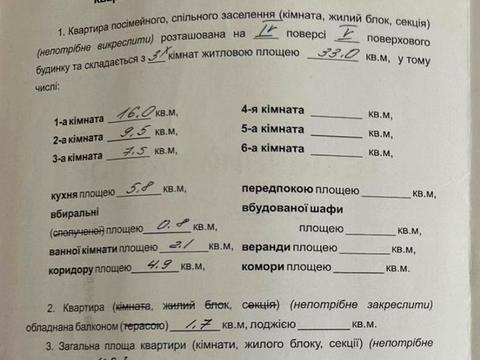 1. Квартира посімейного, спільного заселення (кімната, жилий блок, секція)
(непотрібне викреслити) розташована на IV поверсі V поверхового
будинку та складається з 3х кімнат житловою площею 33.0 кв.м, у тому
числі:
1-а кімната 16.0 кв.м, 4-я кімната кв.м,
2-а кімната 9.5 кв.м, 5-а кімната кв.м,
3-а кімната 7.5 кв.м, 6-а кімната кв.м,
кухня площею 5.8 кв.м, передпокою площею кв.м,
вбиральні вбудованої шафи
(сполученої) площею 0.8 кв.м, площею кв.м,
ванної кімнати площею 2.1 кв.м, веранди площею кв.м,
коридору площею 4.9 кв.м, комори площею кв.м.
2. Квартира (кімната, жилий блок, секція) (непотрібне закреслити)
обладнана балконом (терасою) 1.7 кв.м, лоджією кв.м.
3. Загальна площа квартири (кімнати, жилого блоку, секції) (непотрібне